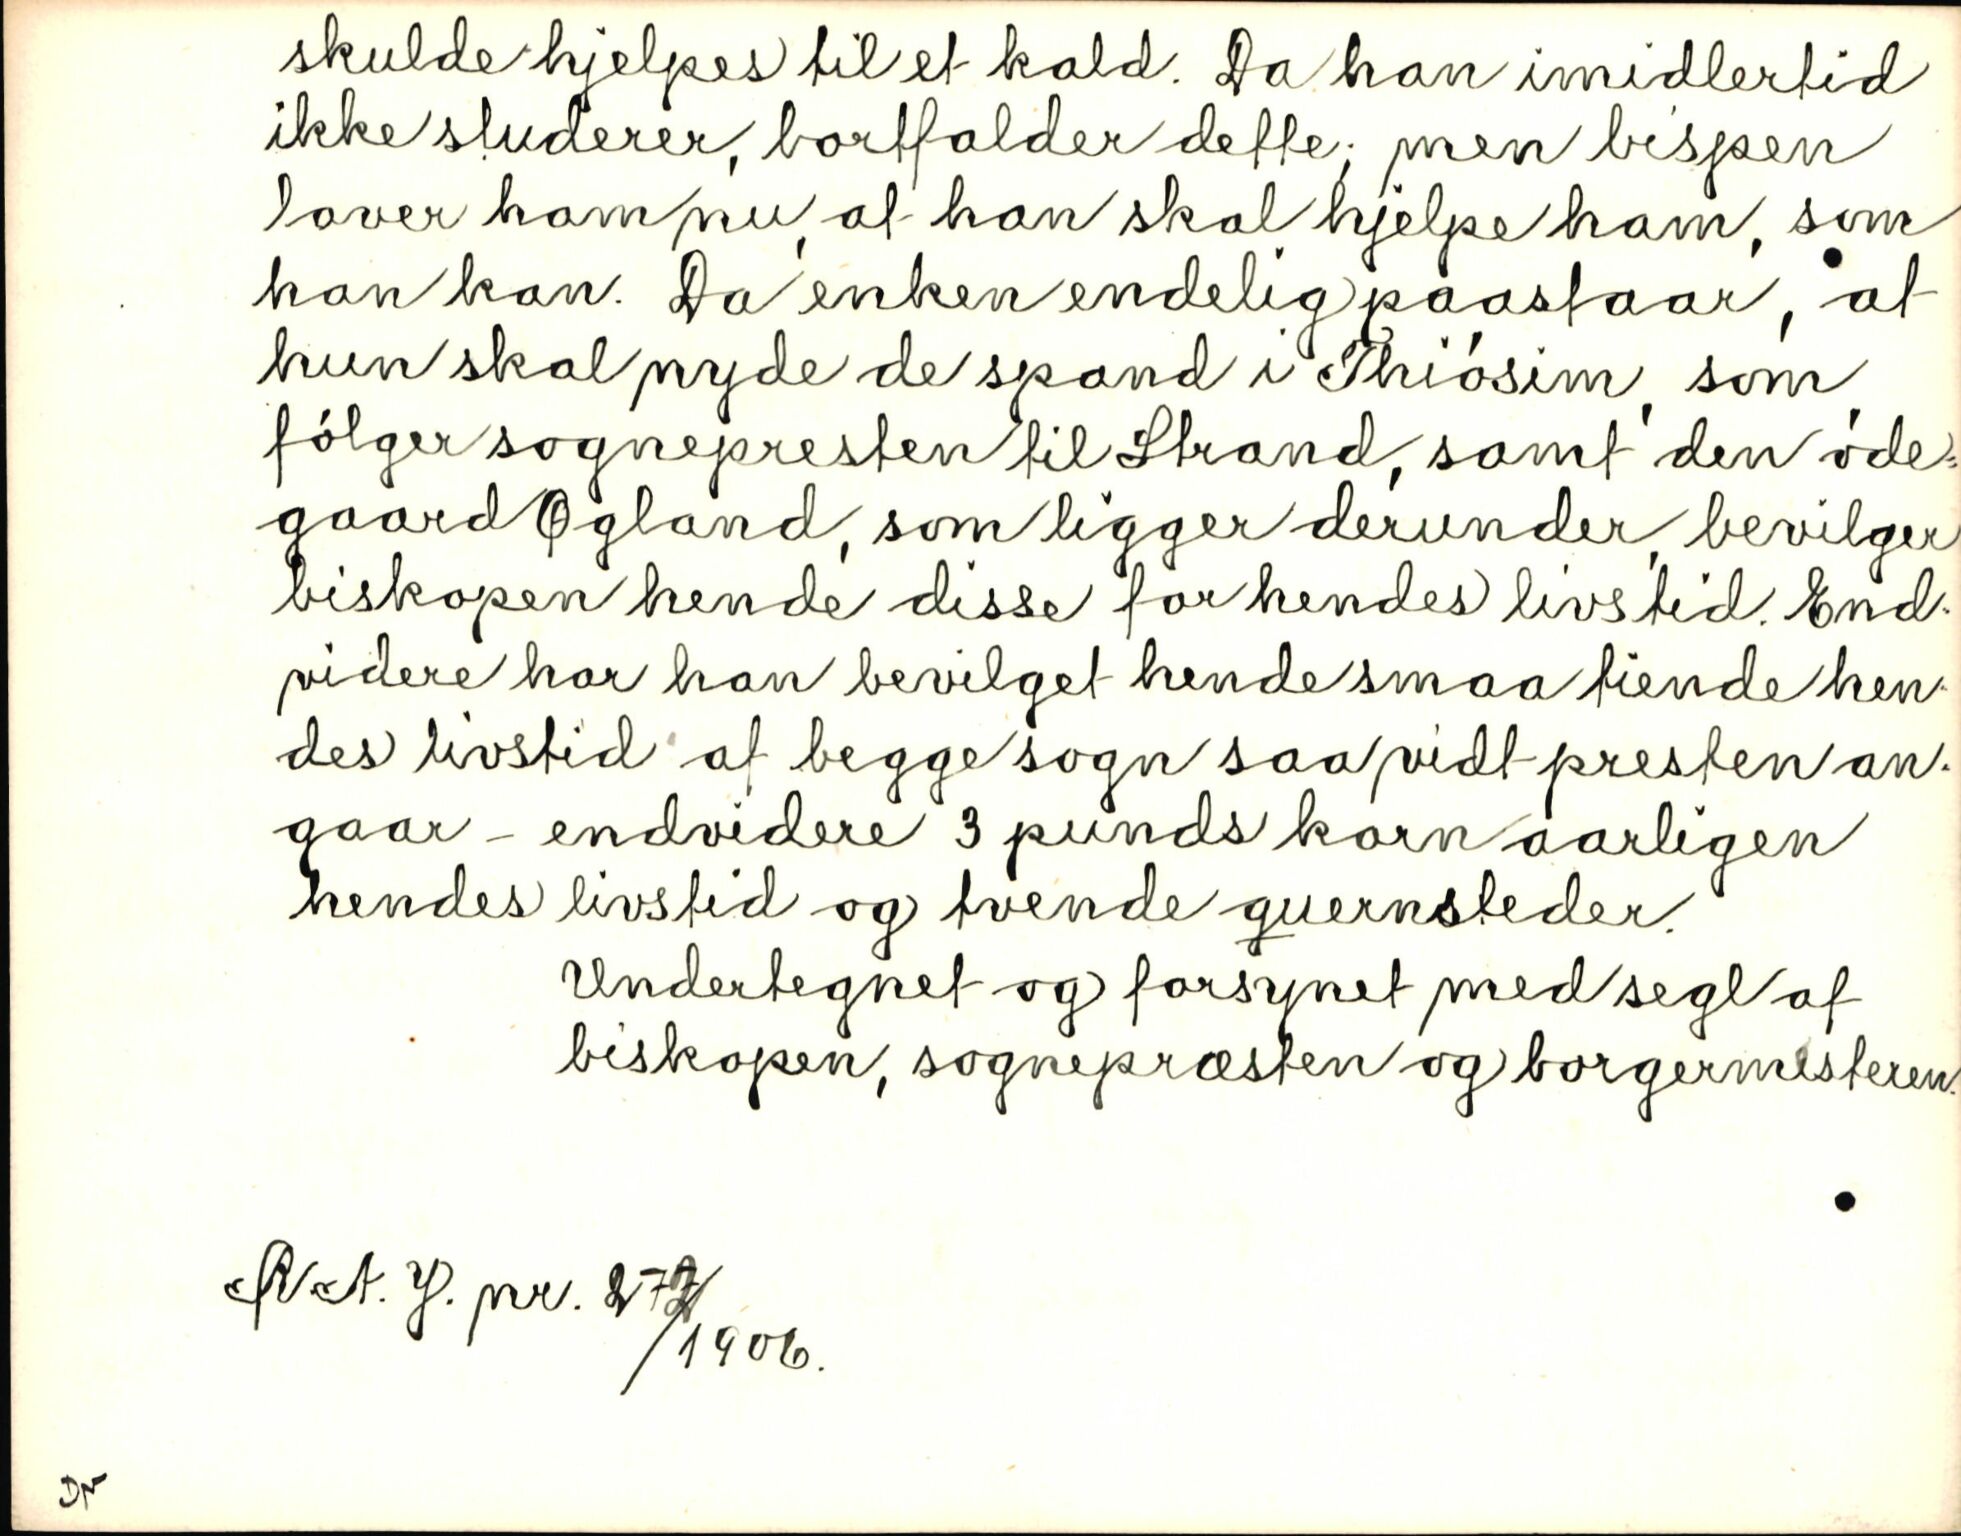 skulde hjelpes til et kald. Da han imidlertid
ikke studerer, bortfalder dette; men bispen
lover ham nu, at han skal hjelpe ham, som
han kan. Da enken endelig paastaar, at
hun skal nyde de spand i Thiósim, som
fólger sognepresten til Strand, samt den óde=
gaard Ogland, som ligger derunder, bevilger
biskopen hende disse for hendes livstid. End-
videre har han bevilget hende smaa tiende hen-
des livstid af begge sogn saa vidt presten an-
gaar - endvidere 3 punds korn aarligen
hendes livstid og tvende quernsteder.
Undertegnet og forsynet med segl af
biskopen, sognepræsten og borgermesteren.
R. A. Y. nr.
/1906.
DN